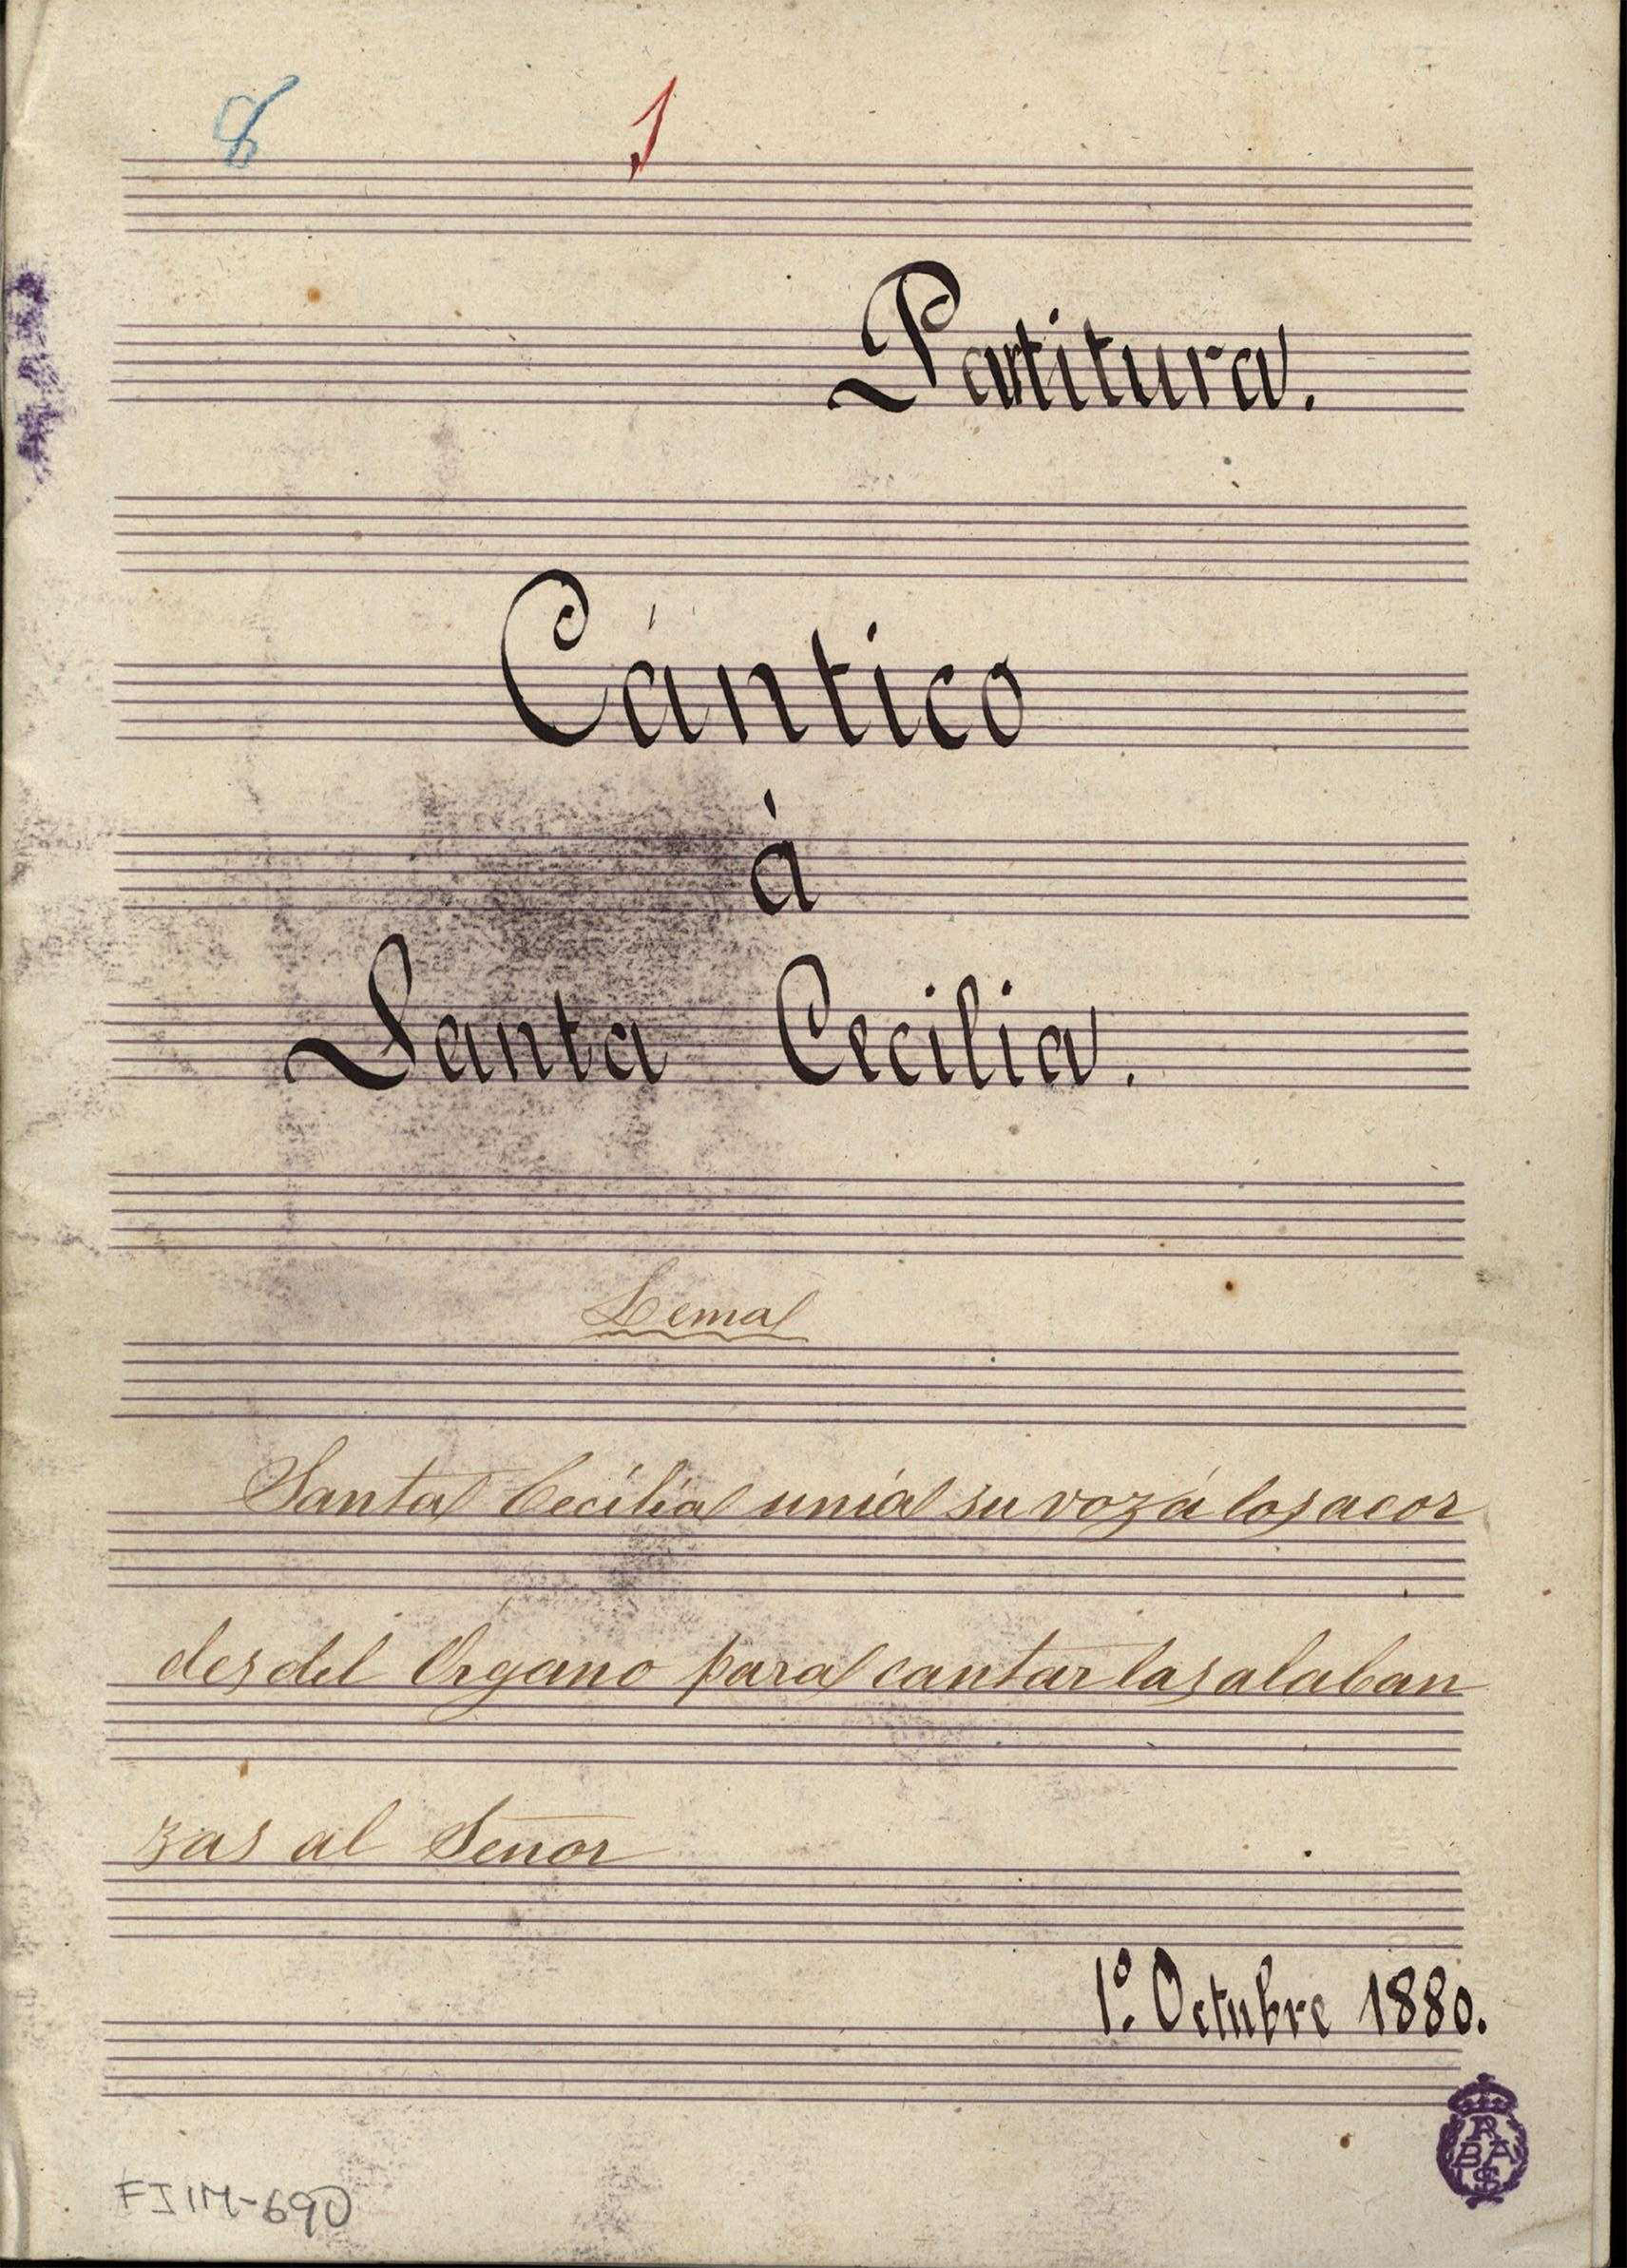 8 1
Partitura.
Cántico
á
Santa Cecilia.
Lema
Santa Cecilia unia su voz á los acor
des del Organo para cantar las alaban
zas al Señor
1º. Octubre 1880.
R
BA
S
FJIM-690